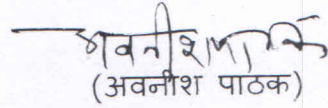 अवनीश पाठक
(अवनीश पाठक)